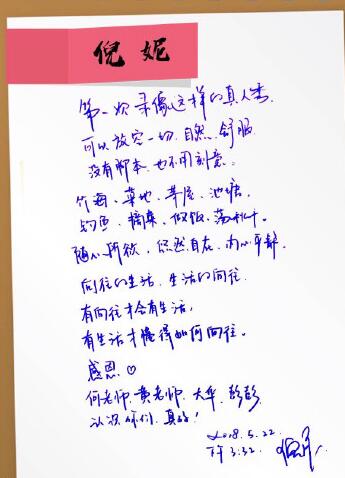 倪妮
第一次录像这样的真人秀
可以放空一切.自然.舒服
没有脚本.也不用刻意.
竹海、菜地、茅屋、池塘.
钓鱼、摘菜、做饭、荡秋千.
随心所欲、悠然自在、内心平静.
向往的生活.生活的向往
有向往才会有生活,
有生活才懂得如何向往。
感恩♡
何老师.黄老师.大华.彭彭
认识你们.真好!
2018.5.22
下午3:32.